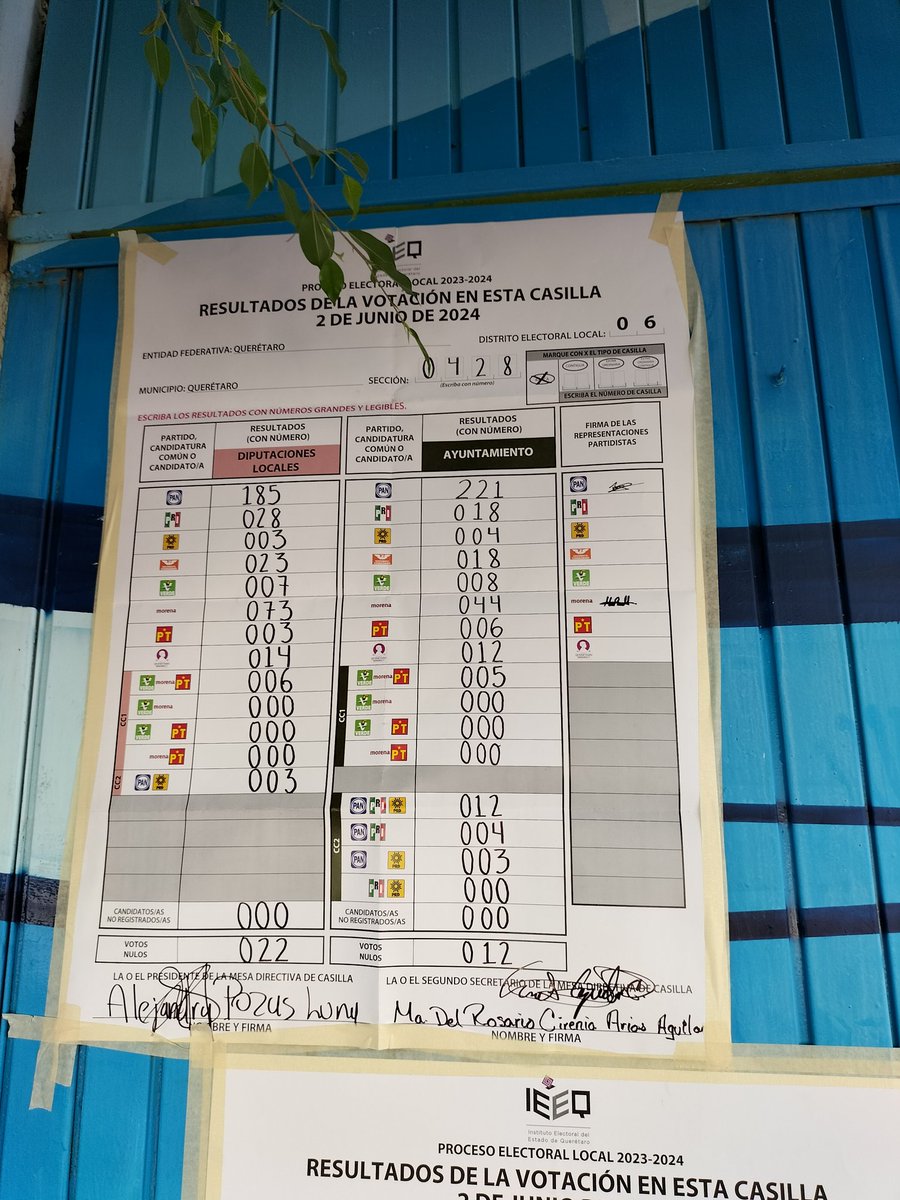 IEEQ
PROCESO ELECTORAL LOCAL 2023-2024
RESULTADOS DE LA VOTACIÓN EN ESTA CASILLA
2 DE JUNIO DE 2024
DISTRITO ELECTORAL LOCAL: 0 6
ENTIDAD FEDERATIVA: QUERÉTARO
MARQUE CON X EL TIPO DE CASILLA
MUNICIPIO: QUERÉTARO
SECCIÓN: 0 4 2 8
(Escriba con número)
X
ESCRIBA EL NÚMERO DE CASILLA
ESCRIBA LOS RESULTADOS CON NÚMEROS GRANDES Y LEGIBLES.
PARTIDO, CANDIDATURA COMÚN O CANDIDATO/A RESULTADOS (CON NÚMERO) DIPUTACIONES LOCALES
PARTIDO, CANDIDATURA COMÚN O CANDIDATO/A RESULTADOS (CON NÚMERO) AYUNTAMIENTO
FIRMA DE LAS REPRESENTACIONES PARTIDISTAS
PAN 185 PAN 221 PAN
PRI 028 PRI 018 PRI
PRD 003 PRD 004 PRD
023 018
VERDE 007 VERDE 008 VERDE
morena 073 morena 044 morena
PT 003 PT 006 PT
014 012
CC1 VERDE morena PT 006 CC1 VERDE morena PT 005
VERDE morena 000 VERDE morena 000
VERDE PT 000 VERDE PT 000
morena PT 000 morena PT 000
CC2 PAN PRD 003
CC2 PAN PRI PRD 012
PAN PRI 004
PAN PRD 003
PRI PRD 000
CANDIDATOS/AS NO REGISTRADOS/AS 000 CANDIDATOS/AS NO REGISTRADOS/AS 000
VOTOS NULOS 022 VOTOS NULOS 012
LA O EL PRESIDENTE DE LA MESA DIRECTIVA DE CASILLA
LA O EL SEGUNDO SECRETARIO DE LA MESA DIRECTIVA DE CASILLA
Alejandro Pozus Luny
Ma. Del Rosario Cirenia Arias Aguilar
NOMBRE Y FIRMA
NOMBRE Y FIRMA
IEEQ
Instituto Electoral del
Estado de Querétaro
PROCESO ELECTORAL LOCAL 2023-2024
RESULTADOS DE LA VOTACIÓN EN ESTA CASILLA
2 DE JUNIO DE 2024